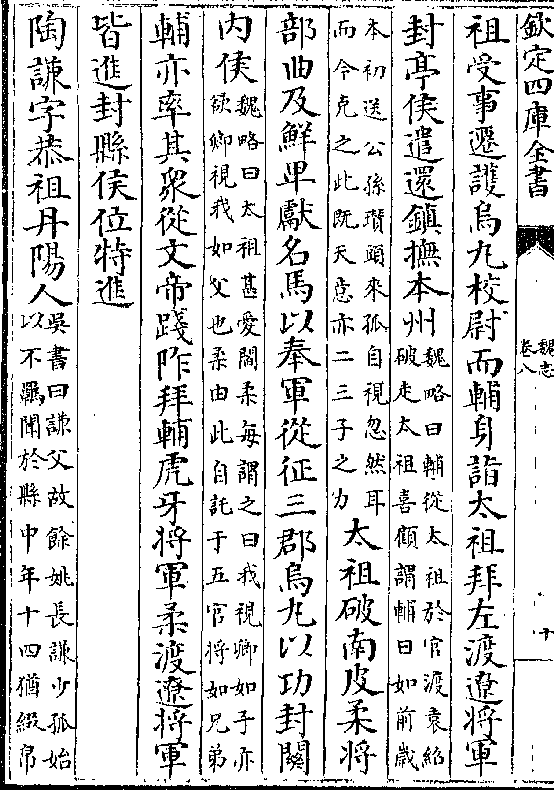 欽定四庫全書
魏志
卷八
十
祖受事遷護烏丸校尉而輔身詣太祖拜左渡遼將軍
封亭侯遣還鎮撫本州
魏略曰輔從太祖於官渡袁紹
破走太祖喜顧謂輔曰如前歲
本初送公孫瓚頭來孤自視忽然耳
而今克之此既天意亦二三子之力
太祖破南皮柔將
部曲及鮮卑獻名馬以奉軍從征三郡烏丸以功封關
内侯
魏略曰太祖甚愛閻柔每謂之曰我視卿如子亦
欲卿視我如父也柔由此自託于五官將如兄弟
輔亦率其衆從文帝踐阼拜輔虎牙將軍柔渡遼將軍
皆進封縣侯位特進
陶謙字恭祖丹陽人
吳書曰謙父故餘姚長謙少孤始
以不羈聞於縣中年十四猶綴帛